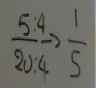 5:4/20:4 → 1/5